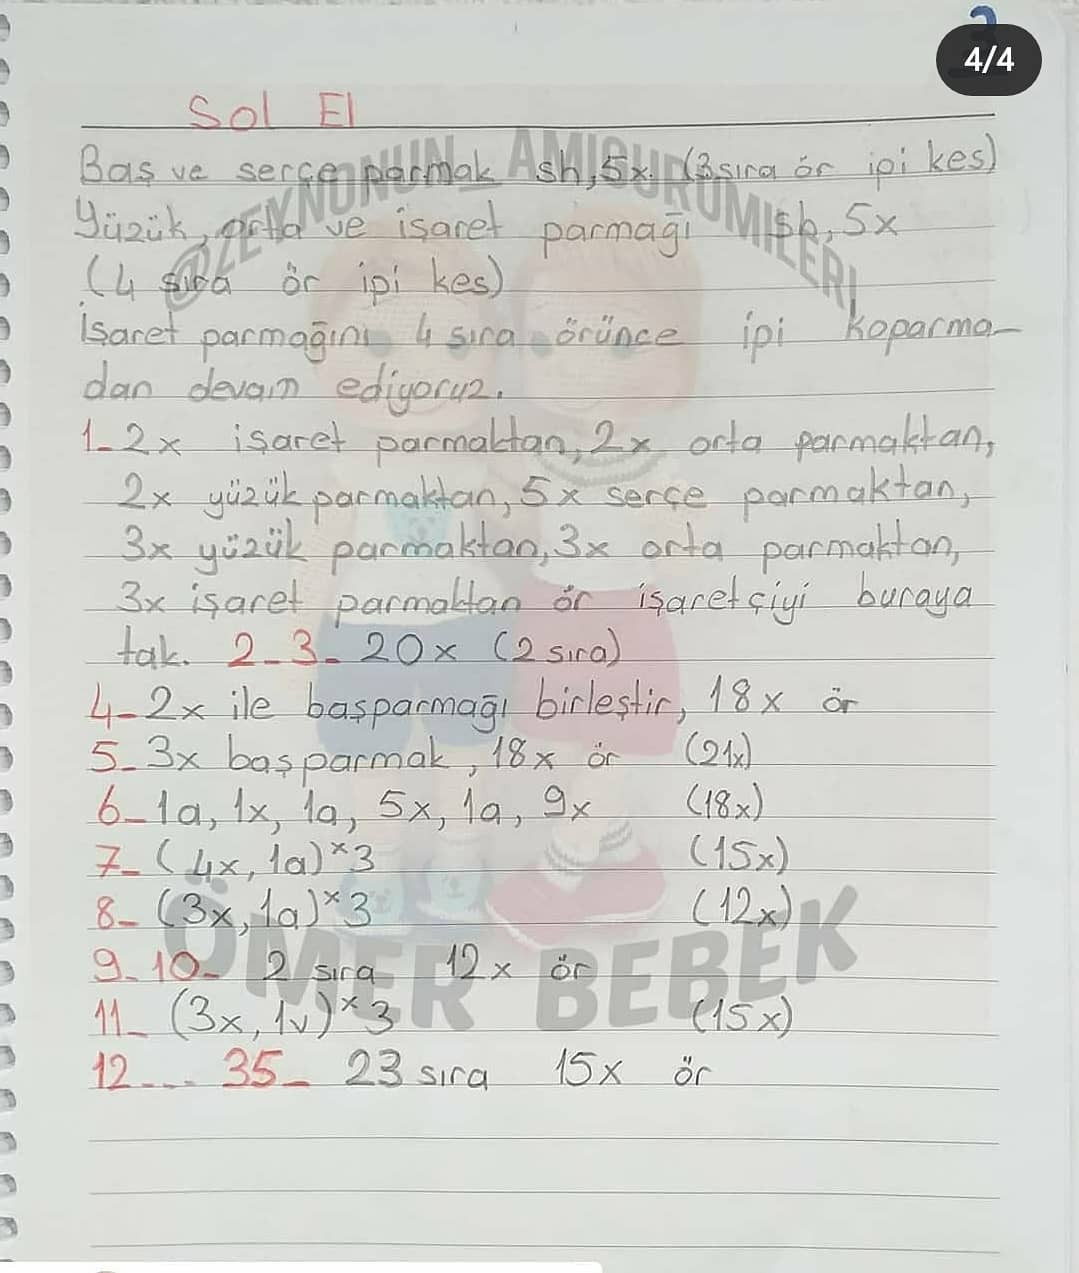 4/4
Sol El
Baş ve serçe parmak sh, 5x. (3 sıra ör ipi kes)
Yüzük, orta ve işaret parmağı sh, 5x
(4 sıra ör ipi kes)
İşaret parmağını 4 sıra örünce ipi koparma-
dan devam ediyoruz.
1- 2x işaret parmaktan, 2x orta parmaktan,
2x yüzük parmaktan, 5x serçe parmaktan,
3x yüzük parmaktan, 3x orta parmaktan,
3x işaret parmaktan ör işaretçiyi buraya
tak. 2-3- 20x (2 sıra)
4- 2x ile başparmağı birleştir, 18x ör
5- 3x baş parmak, 18x ör (21x)
6- 1a, 1x, 1a, 5x, 1a, 9x (18x)
7- (4x, 1a)*3 (15x)
8- (3x, 1a)*3 (12x)
9-10- 2 sıra 12x ör
11- (3x, 1v)*3 (15x)
12 ... 35- 23 sıra 15x ör
@ZEYNONUN AMIGURUMILERI
ÖMER BEBEK